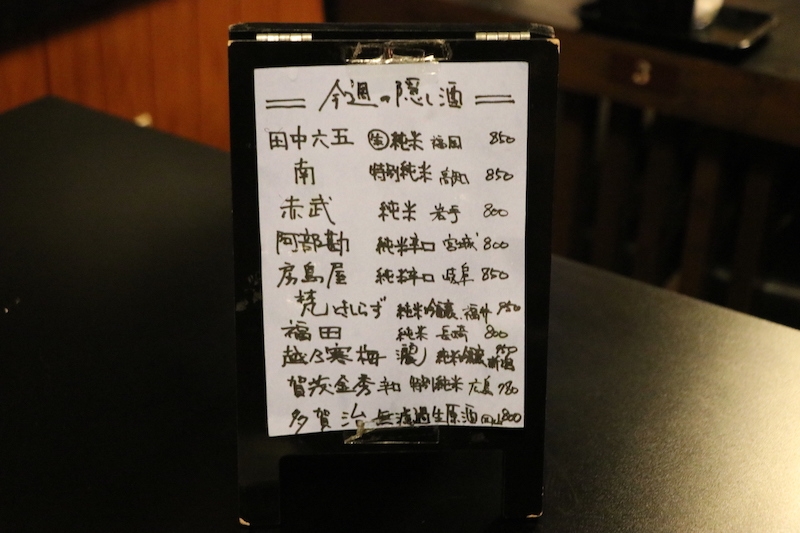 今週の隠し酒
田中六五 生 純米 福岡 850
南 特別純米 高知 850
赤武 純米 岩手 800
阿部勘 純米辛口 宮城 800
房島屋 純米辛口 岐阜 850
梵 ときしらず 純米吟醸 福井 950
福田 純米 長崎 800
越乃寒梅 灑 純米吟醸 新潟 950
賀茂金秀 特別純米 広島 780
多賀治 無濾過生原酒 岡山 800
3